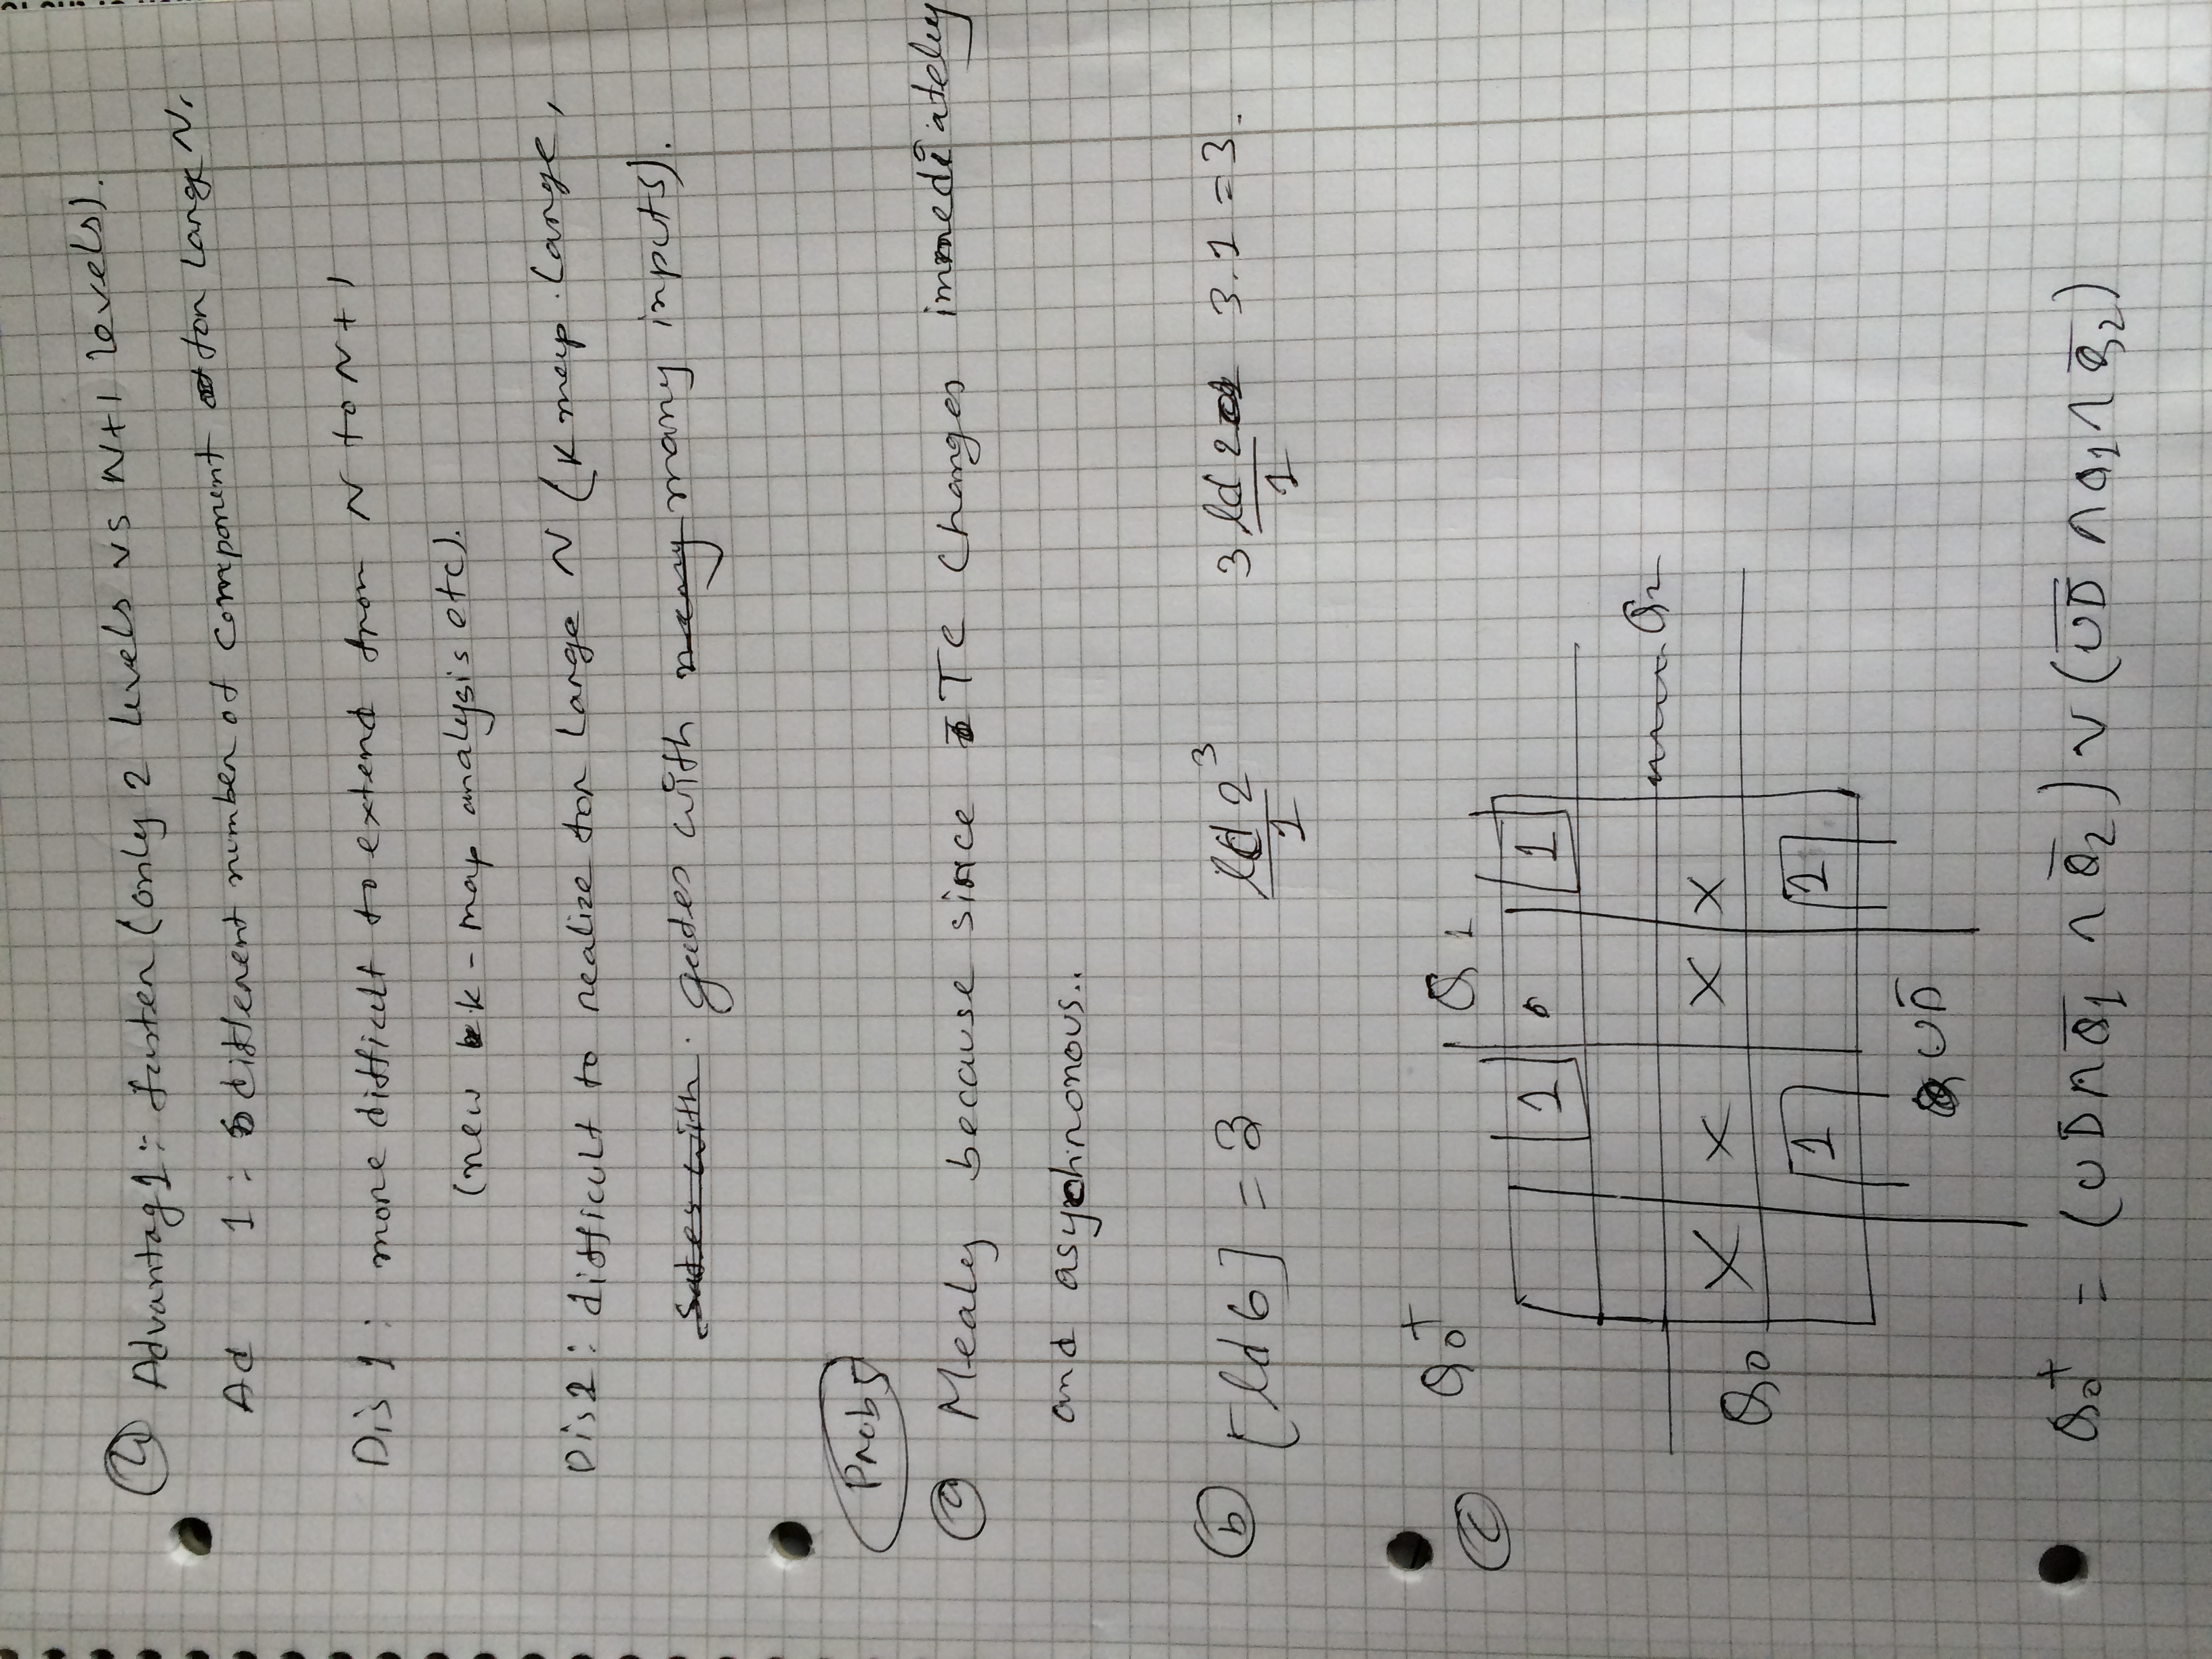 d) Advantag1: faster (only 2 levels vs N+1 levels).
Ad 1: different number of component for Large N.
Dis 1: more difficult to extend from N to N+1
(new k-map analysis etc).
Dis2: difficult to realize for Large N (K map. Large,
gates with many many inputs).
Prob5
a) Mealy because since TC changes immediately
and asychronous..
b) [ld 6] = 3 ld 2³ 3 ld 2 3.1 = 3.
1 1
c) Q₀⁺ Q₁
1 0 1
Q₂
X X X X
Q₀
1 1
UD̄
Q₀⁺ = (UD̄ ∩ Q̄₁ ∩ Q̄₂) ∨ (U̅D̅ ∩ Q₁ ∩ Q̄₂)